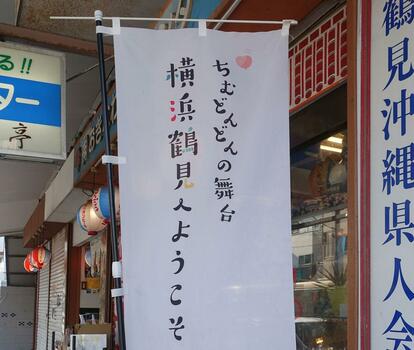 ちむどんどんの舞台
横浜鶴見へようこそ
鶴見沖縄県人会
る!!
ター
亭